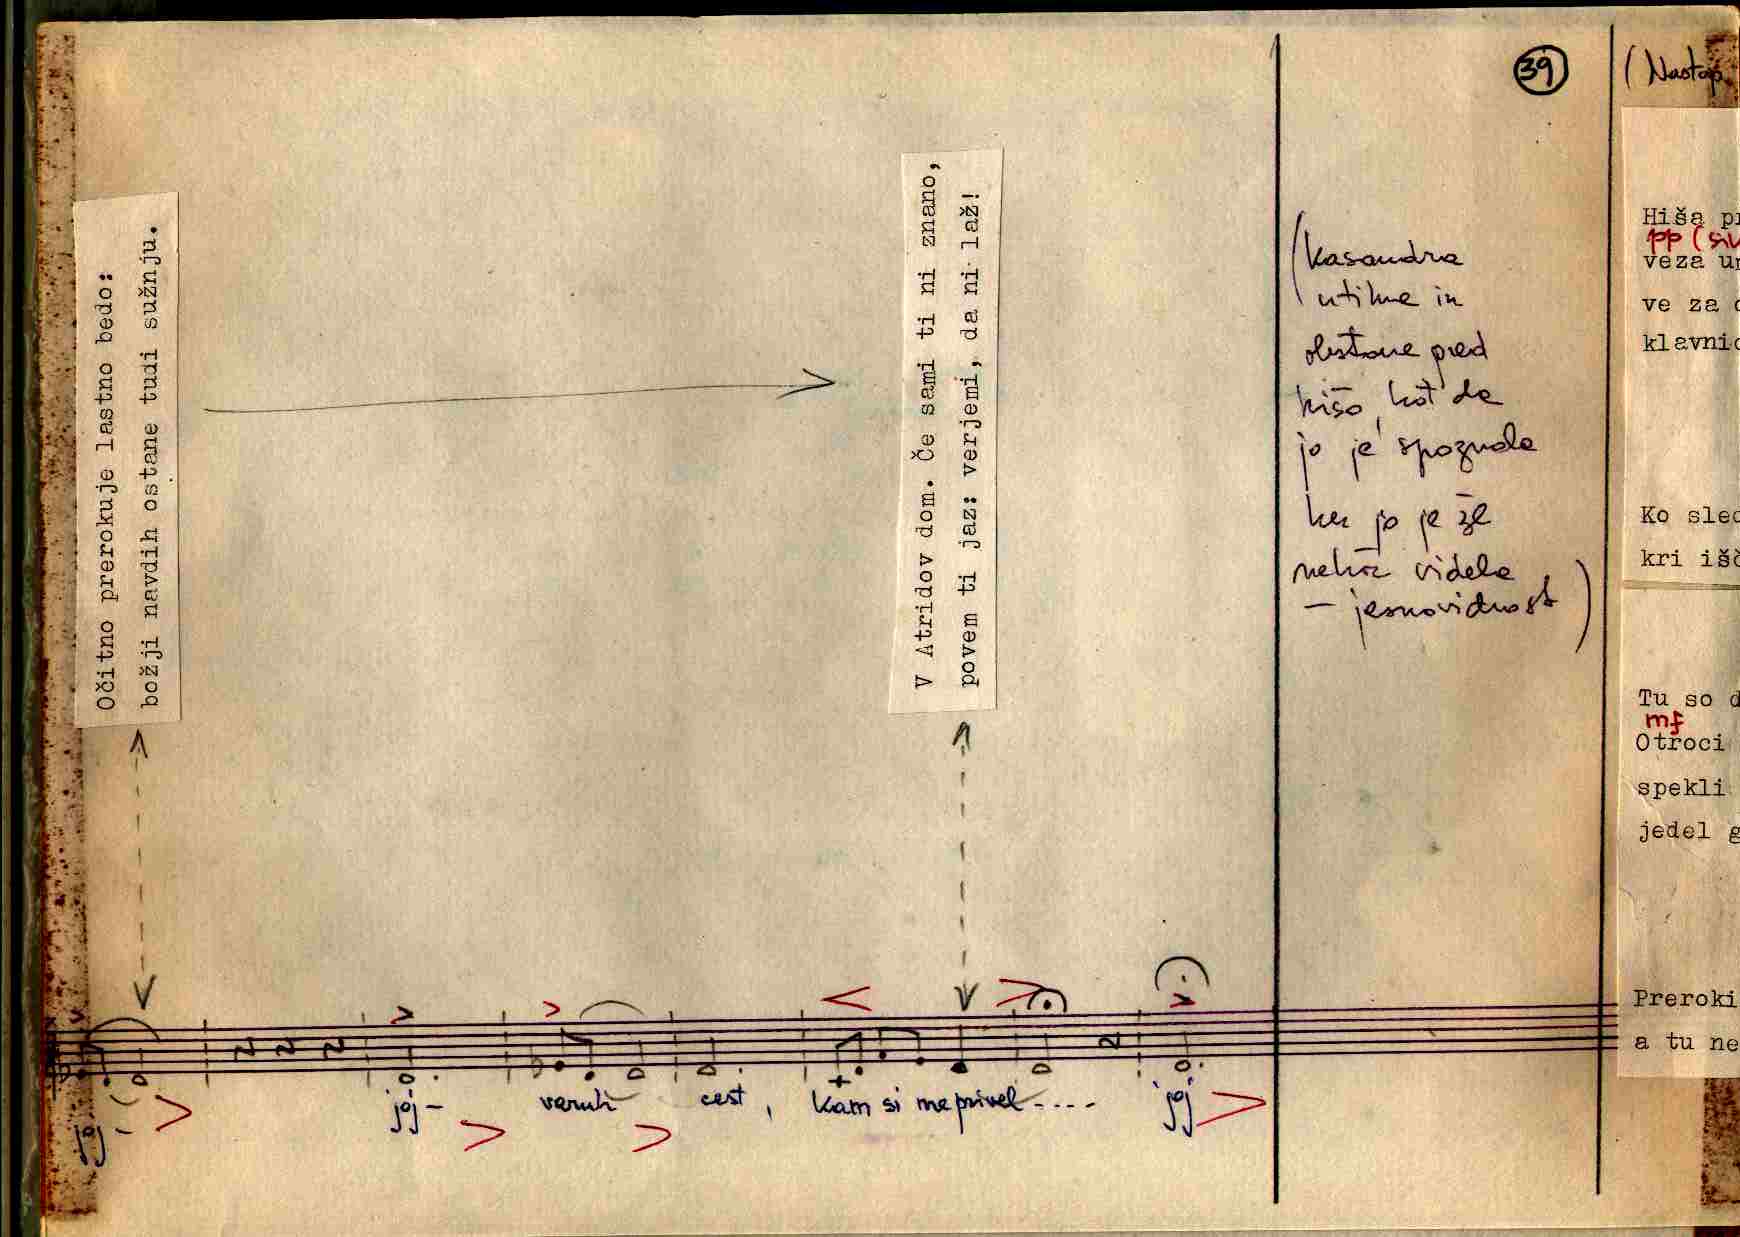 Očitno prerokuje lastno bedo:
božji navdih ostane tudi sužnju.
V Atridov dom. Če sami ti ni znano,
povem ti jaz: verjemi, da ni laž!
joj -
joj -
varuh
cest,
kam si me privel ....
joj
39
(Kasandra
utihne in
obstane pred
hišo, kot da
jo je spoznala
ker jo je že
nekoč videla
- jasnovidnost)
(Nastop
Hiša
pp
veza
ve za
klavnic
Ko
kri
Tu so
mf
Otroci
spekli
jedel
Preroki
a tu ne